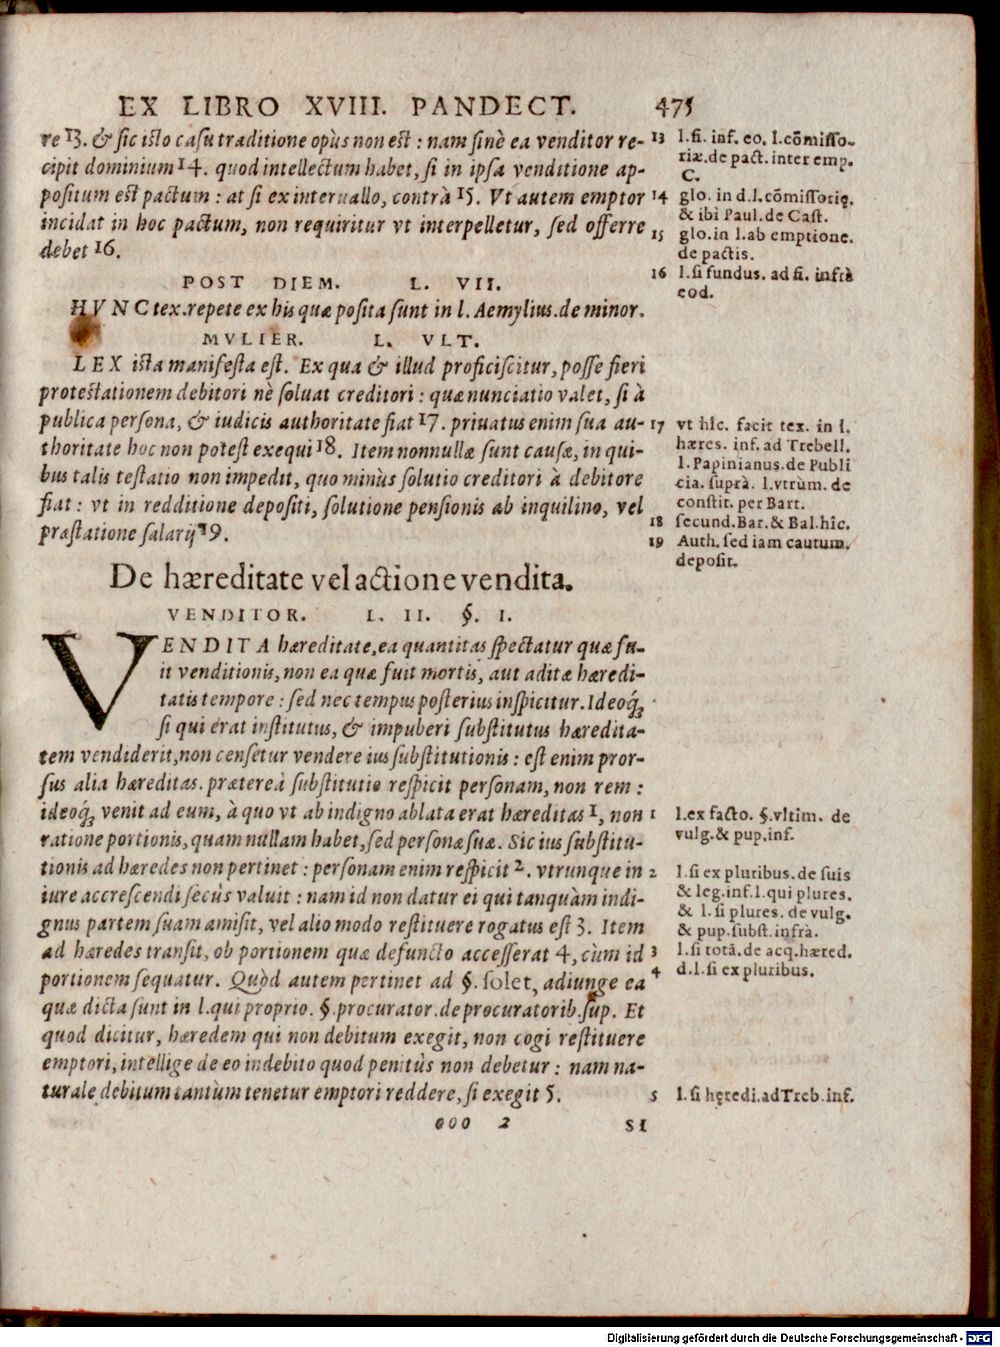 EX LIBRO XVIII. PANDECT. 475
re 13. & sic isto casu traditione opùs non est : nam sinè ea venditor re-
cipit dominium 14. quod intellectum habet, si in ipsa venditione ap-
positum est pactum : at si ex interuallo, contrà 15. Vt autem emptor
incidat in hoc pactum, non requiritur vt interpelletur, sed offerre
debet 16.
POST DIEM. L. VII.
HVNC tex. repete ex his quæ posita sunt in l. Aemylius. de minor.
MVLIER. L. VLT.
LEX ista manifesta est. Ex qua & illud proficiscitur, posse fieri
protestationem debitori nè soluat creditori : quæ nunciatio valet, si à
publica persona, & iudicis authoritate fiat 17. priuatus enim sua au-
thoritate hoc non potest exequi 18. Item nonnullæ sunt causæ, in qui-
bus talis testatio non impedit, quo minùs solutio creditori à debitore
fiat : vt in redditione depositi, solutione pensionis ab inquilino, vel
præstatione salarij 19.
De hæreditate vel actione vendita.
VENDITOR. L. II. §. I.
VENDITA hæreditate, ea quantitas spectatur quæ fu-
it venditionis, non ea quæ fuit mortis, aut aditæ hæredi-
tatis tempore : sed nec tempus posterius inspicitur. Ideoq́;
si qui erat institutus, & impuberi substitutus hæredita-
tem vendiderit, non censetur vendere ius substitutionis : est enim pror-
sus alia hæreditas. prætereà substitutio respicit personam, non rem :
ideoq́; venit ad eum, à quo vt ab indigno ablata erat hæreditas 1, non
ratione portionis, quam nullam habet, sed personæ suæ. Sic ius substitu-
tionis ad hæredes non pertinet : personam enim respicit 2. vtrunque in
iure accrescendi secùs valuit : nam id non datur ei qui tanquàm indi-
gnus partem suam amisit, vel alio modo restituere rogatus est 3. Item
ad hæredes transit, ob portionem quæ defuncto accesserat 4, cùm id
portionem sequatur. Quòd autem pertinet ad §. solet, adiunge ea
quæ dicta sunt in l. qui proprio. §. procurator. de procuratorib. sup. Et
quod dicitur, hæredem qui non debitum exegit, non cogi restituere
emptori, intellige de eo indebito quod penitùs non debetur : nam na-
turale debitum tantùm tenetur emptori reddere, si exegit 5.
ooo 2 SI
13 l. fi. inf. eo. l. cōmisso-
riæ. de pact. inter emp.
C.
14 glo. in d. l. cōmissorię.
& ibi Paul. de Cast.
15 glo. in l. ab emptione.
de pactis.
16 l. si fundus. ad fi. infrà
eod.
17 vt hîc. facit tex. in l.
hæres. inf. ad Trebell.
l. Papinianus. de Publi
cia. suprà. l. vtrùm. de
constit. per Bart.
18 secund. Bar. & Bal. hîc.
19 Auth. sed iam cautum.
deposit.
1 l. ex facto. §. vltim. de
vulg. & pup. inf.
2 l. si ex pluribus. de suis
& leg. inf. l. qui plures.
& l. si plures. de vulg.
& pup. subst. infrà.
3 l. si totā. de acq. hæred.
4 d. l. si ex pluribus.
5 l. si hęredi. ad Treb. inf.
Digitalisierung gefördert durch die Deutsche Forschungsgemeinschaft - DFG